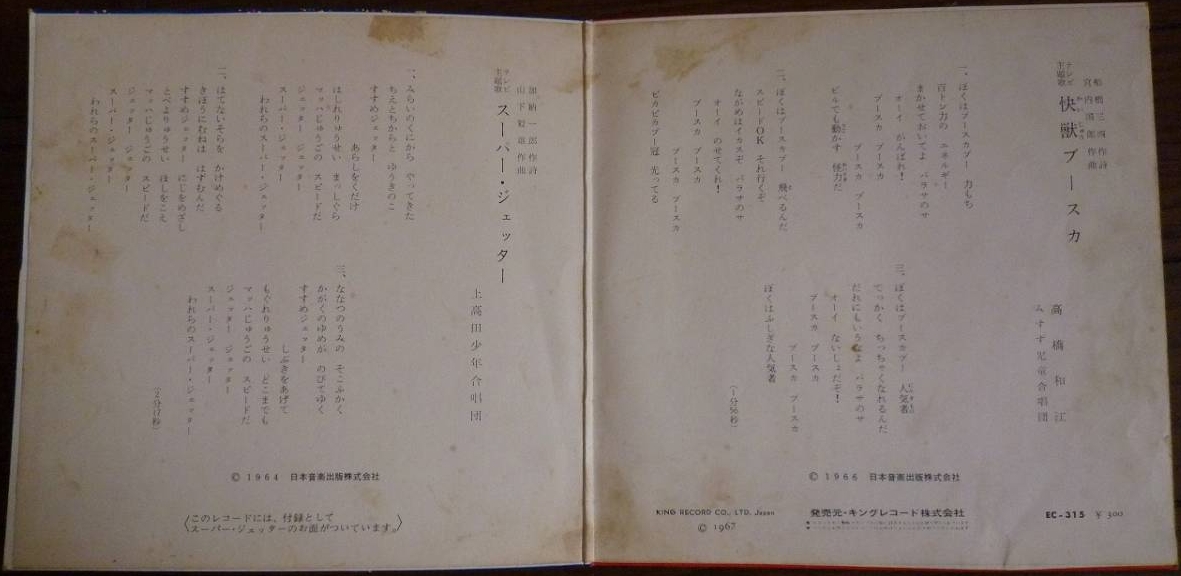 テレビ主題歌
快獣ブースカ
かいじゅう
船橋三四作詩
宮内国郎作曲
高橋和江
みすず児童合唱団
一、ぼくはブースカブー 力もち
百トン力の エネルギー
まかせておいてよ バラサのサ
オーイ がんばれ!
ブースカ ブースカ
ブースカ ブースカ
ビルでも動かす 怪力だ
二、ぼくはブースカブー 飛べるんだ
スピードOK それ行くぞ
ながめはイカスぞ バラサのサ
オーイ のせてくれ!
ブースカ ブースカ
ブースカ ブースカ
ピカピカブー冠 光ってる
三、ぼくはブースカブー 人気者
でっかく ちっちゃくなれるんだ
だれにもいうなよ バラサのサ
オーイ ないしょだぞ!
ブースカ ブースカ
ブースカ ブースカ
ぼくはふしぎな人気者
(1分56秒)
© 1966 日本音楽出版株式会社
KING RECORD CO., LTD. Japan
© 1967
発売元・キングレコード株式会社
EC-315 ¥300
テレビ主題歌
スーパー・ジェッター
加納一郎作詩
山下毅雄作曲
上高田少年合唱団
一、みらいのくにから やってきた
ちえとちからと ゆうきのこ
すすめジェッター
あらしをくだけ
はしれりゅうせい まっしぐら
マッハじゅうごの スピードだ
ジェッター ジェッター
スーパー・ジェッター
われらのスーパー・ジェッター
二、はてないそらを かけめぐる
きぼうにむねは はずむんだ
すすめジェッター にじをめざし
とべよりゅうせい ほしをこえ
マッハじゅうごの スピードだ
ジェッター ジェッター
スーパー・ジェッター
われらのスーパー・ジェッター
三、ななつのうみの そこふかく
かがくのゆめが のびてゆく
すすめジェッター
しぶきをあげて
もぐれりゅうせい どこまでも
マッハじゅうごの スピードだ
ジェッター ジェッター
スーパー・ジェッター
われらのスーパー・ジェッター
© 1964 日本音楽出版株式会社
〈このレコードには、付録として
スーパー・ジェッターのお面がついています。〉